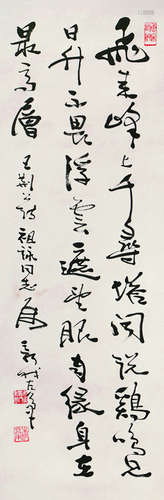 飛来峰上千尋塔聞説鷄鳴見
日升不畏浮雲遮望眼自緣身在
最高層 王荆公詩 祖詠同志屬
新我左筆